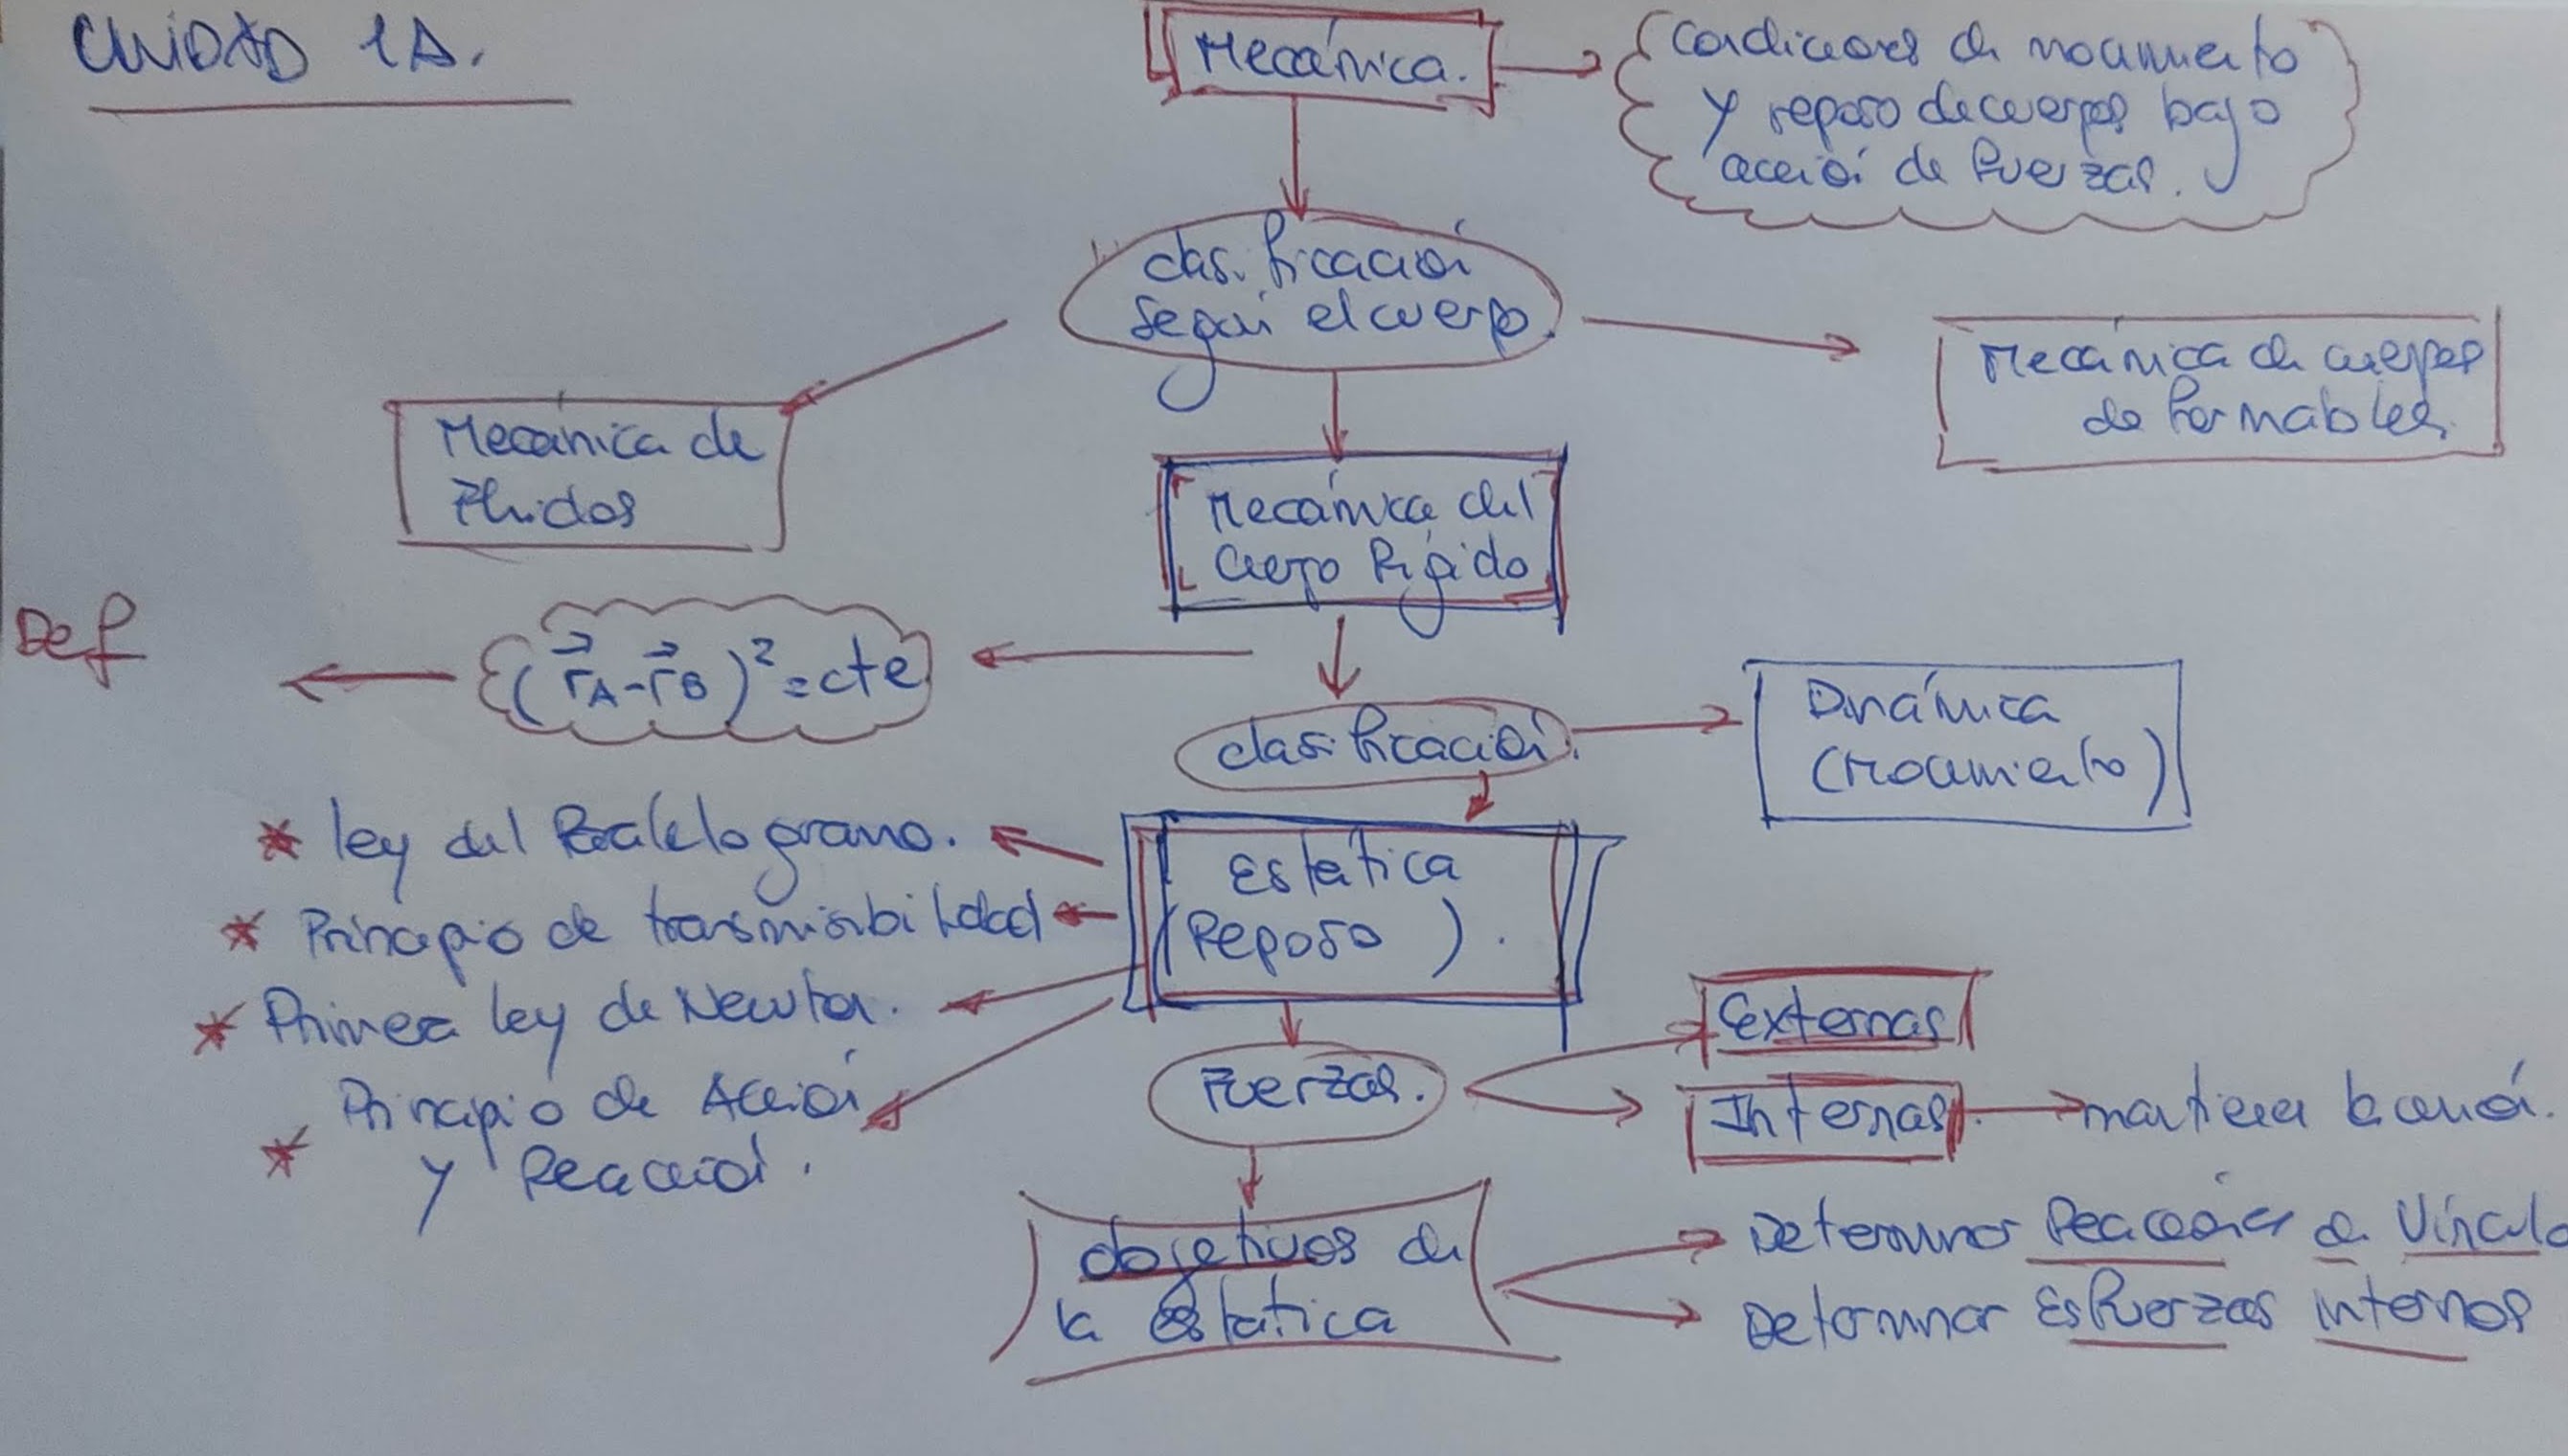 UNIDAD 1A.
Mecánica.
Condiciones de movimiento
y reposo de cuerpos bajo
acción de fuerzas.
clasificación
según el cuerpo.
Mecánica de
Fluidos
Mecánica de cuerpos
deformables.
Mecánica del
Cuerpo Rígido
Def
(r⃗A-r⃗B)²=cte
clasificación.
Dinámica
(Movimiento)
* ley del Paralelogramo.
* Principio de transmisibilidad
* Primera ley de Newton.
Principio de Acción
* y Reacción.
Estática
(Reposo).
Fuerzas.
Externas
Internas.
mantiene la
objetivos de
la estática
Determinar Reacciones de Vínculo
Determinar Esfuerzos internos